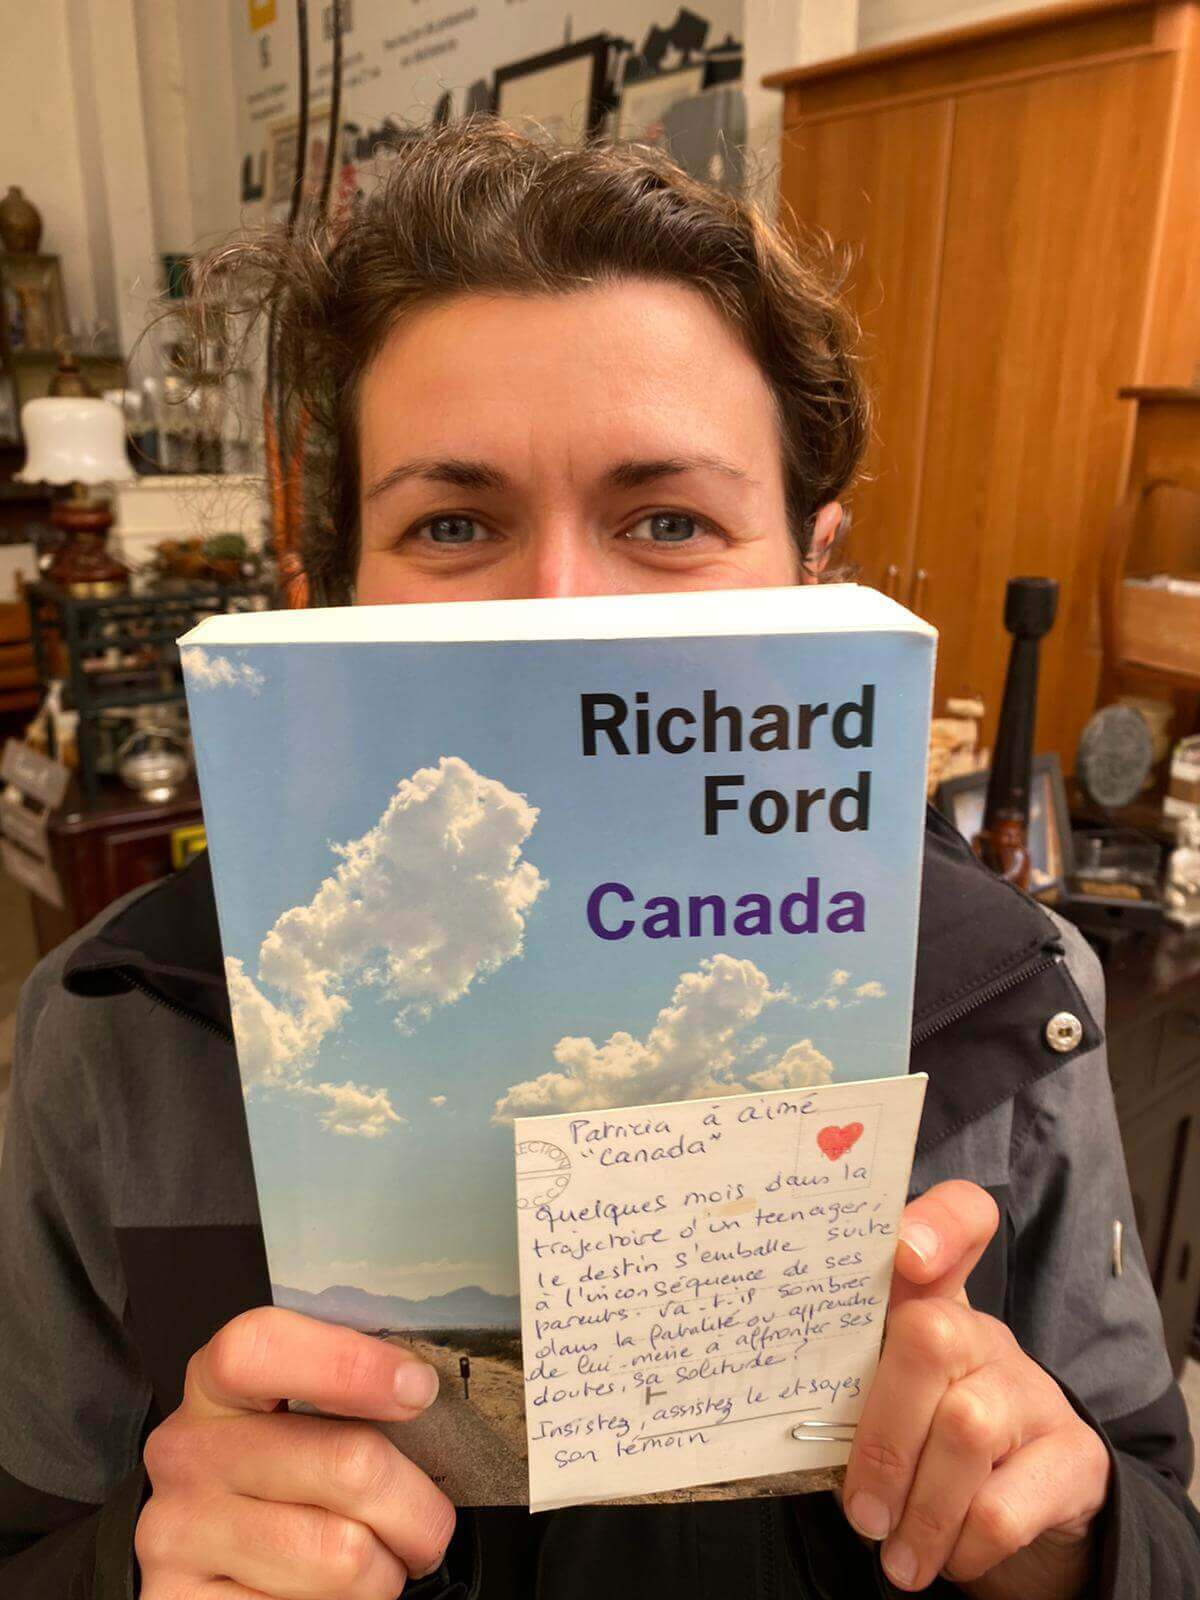 Richard
Ford
Canada
Patricia à aimé
"Canada"
ECTION
quelques mois dans la
trajectoire d'un teenager;
le destin s'emballe suite
à l'inconséquence de ses
parents. Va-t-il sombrer
dans la fatalité ou apprendre
de lui-même à affronter ses
doutes, sa solitude?
Insistez, assistez le et soyez
son témoin